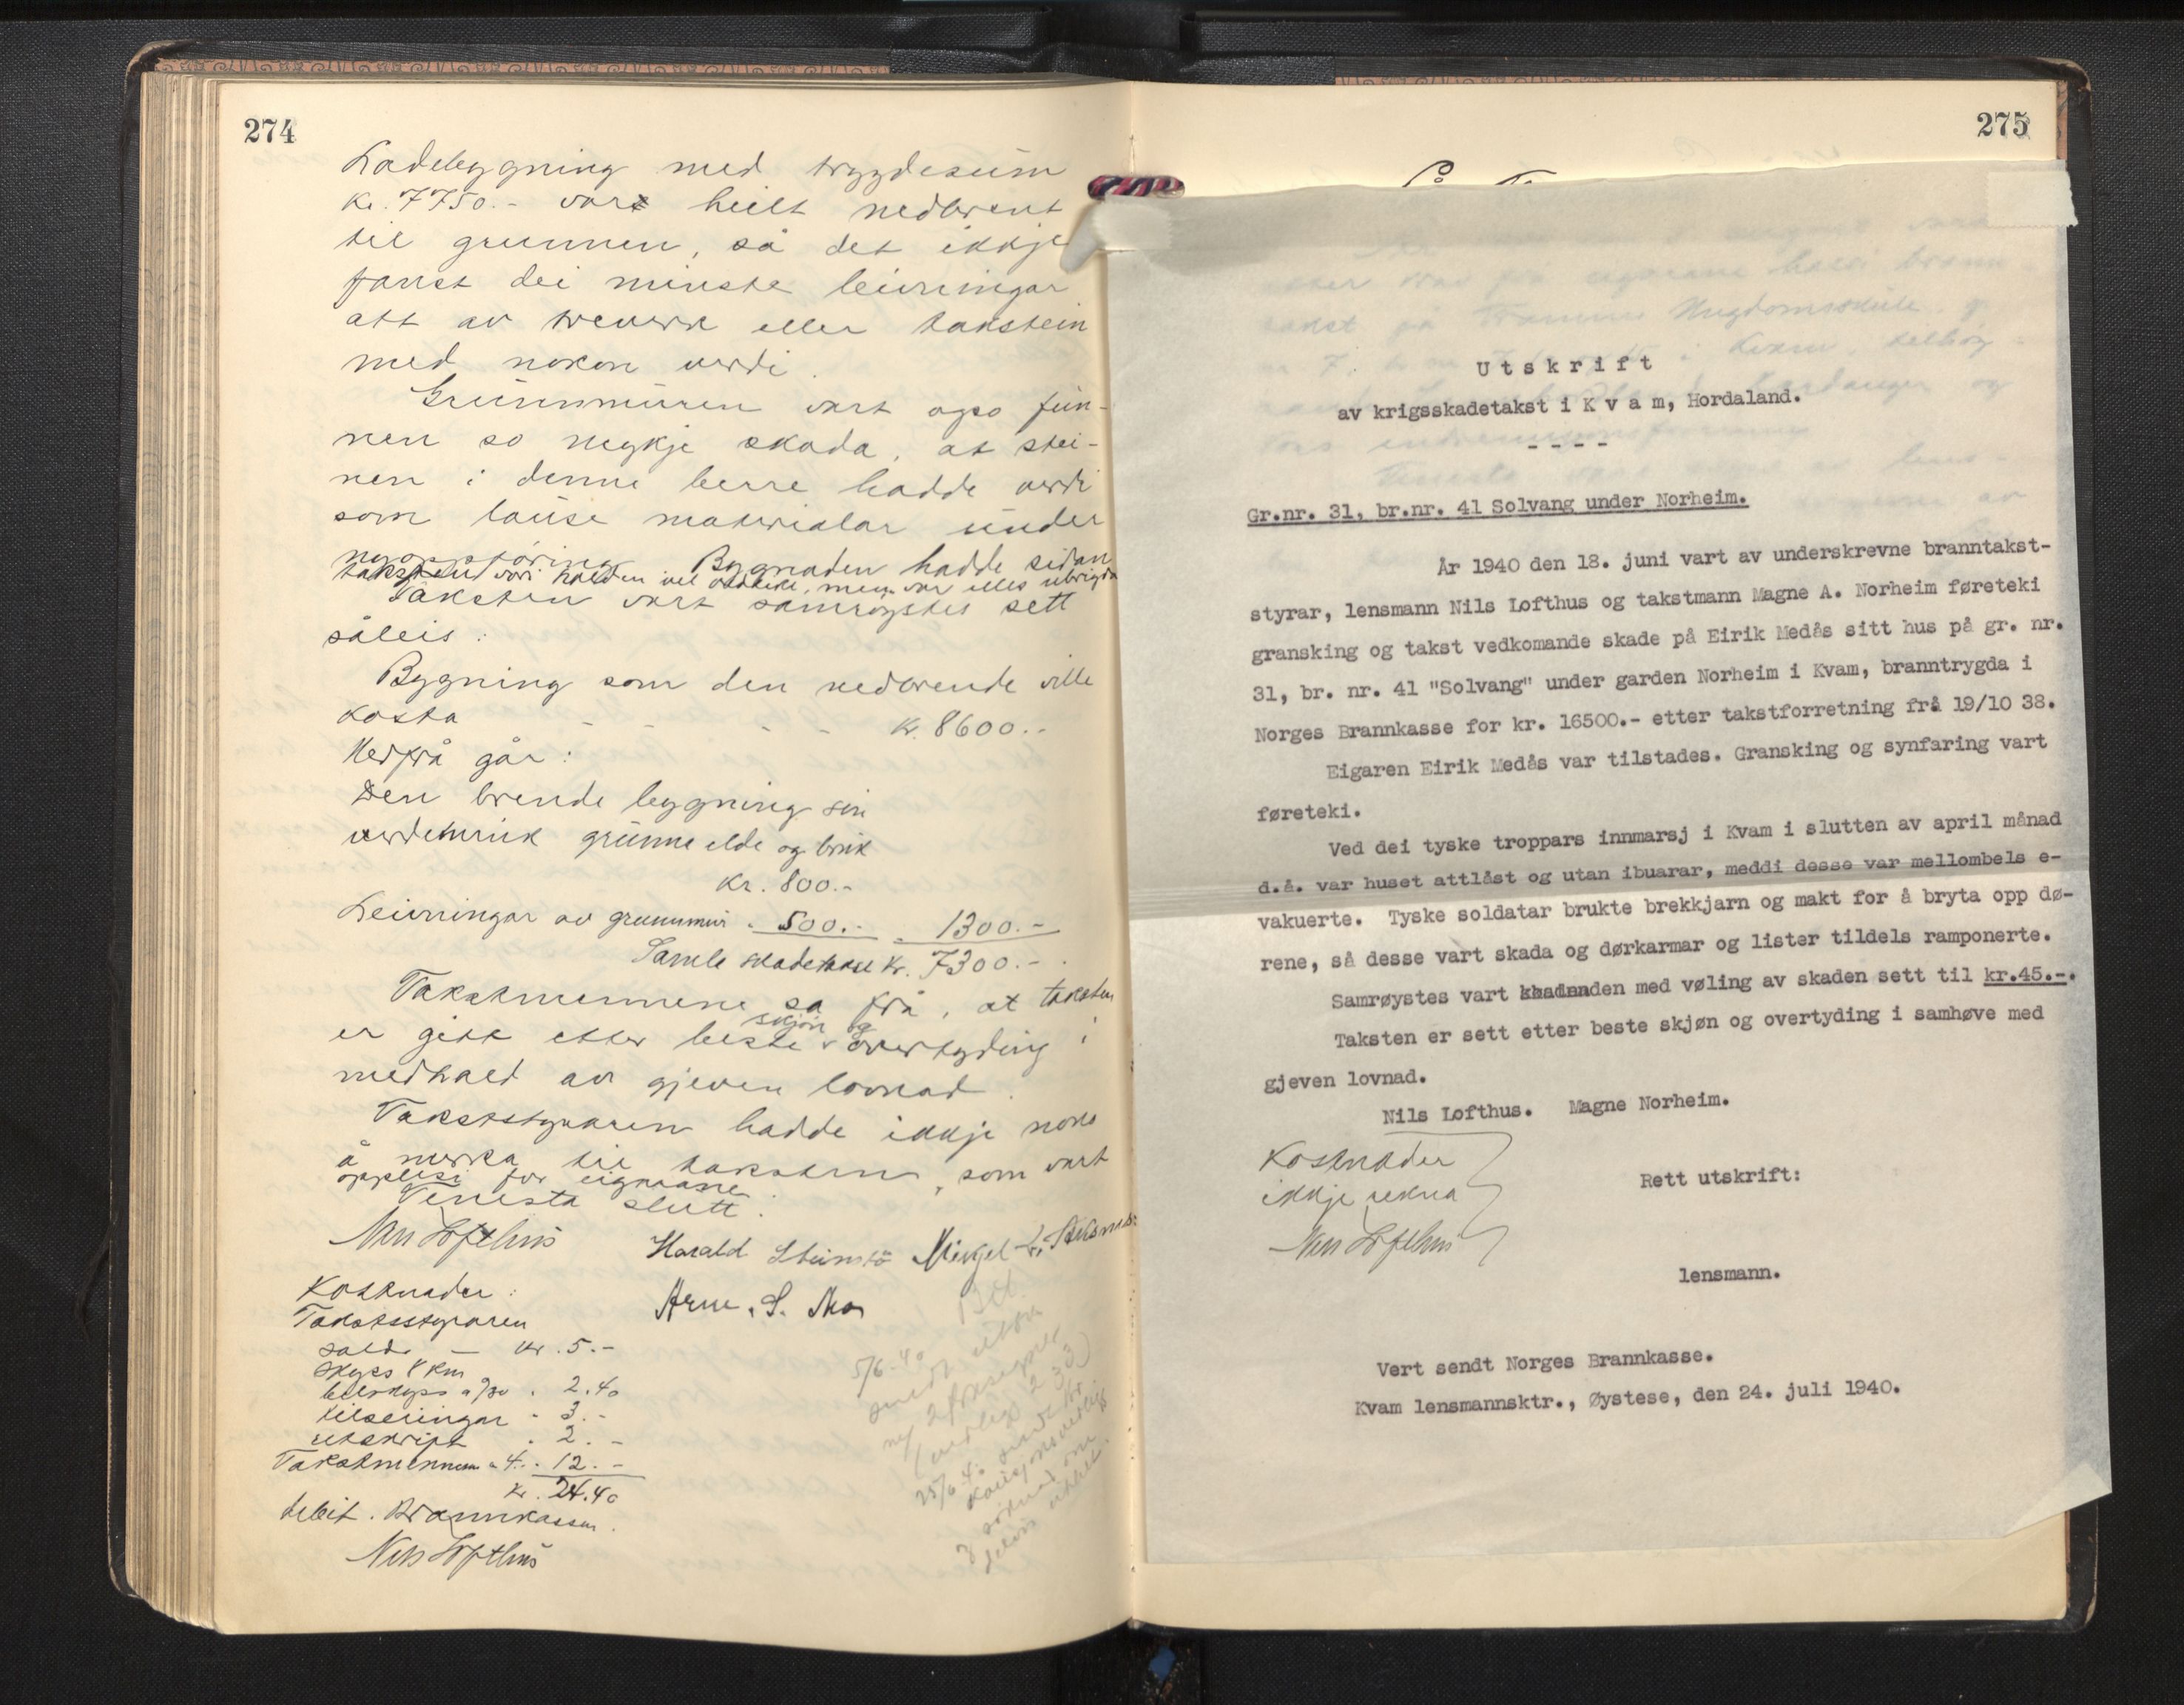 274
Ladebygning med trygdesum
kr. 7750.- vart heilt nedbrent
til grunnen, så det ikkje
fanst dei minste leivningar
att av treverk eller takstein
med nokon verdi.
Grunnmuren vart ogso fun-
nen so mykje skada, at stei-
nen i denne berre hadde verdi
som lause materialar under
nyoppføring. Bygnaden hadde sidan
taksten vori halden vel vedlike, men var elles ubrigda
Taksten vart samrøystes sett
såleis:
Bygning som den nedbrende ville
kosta - - - - kr. 8600.-
Herfrå går:
Den brende bygning sin
verdemink grunna elde og bruk
kr. 800.-
Leivningar av grunnmur " 500.- " 1300.-
Samla skadetakst kr. 7300.-
Takstmennene sa frå, at taksten
er gitt etter beste skjøn og overtyding i
medhald av gjeven lovnad.
Takststyraren hadde ikkje noko
å merka til taksten, som vart
opplesi for eigarane.
Tenesta slutt.
Nils Lofthus Harald Steinstø Mikjel
Arne S. Mo
Kostnader:
Takststyraren
sald. - kr. 5.-
Skyss 8 km
bilskyss a /30 " 2.40
tilseiingar " 3.-
utskrift " 2.-
Takstmennene a 4.- " 12.-
kr. 24.40
debit. Brannkassen.
Nils Lofthus
5/6-40
sendt utskr
25/6-40 sendt
275
Utskrift
av krigsskadetakst i Kvam, Hordaland.
- - - -
Gr.nr. 31, br.nr. 41 Solvang under Norheim.
År 1940 den 18. juni vart av underskrevne branntakst-
styrar, lensmann Nils Lofthus og takstmann Magne A. Norheim føreteki
gransking og takst vedkomande skade på Eirik Medås sitt hus på gr. nr.
31, br. nr. 41 "Solvang" under garden Norheim i Kvam, branntrygda i
Norges Brannkasse for kr. 16500.- etter takstforretning frå 19/10 38.
Eigaren Eirik Medås var tilstades. Gransking og synfaring vart
føreteki.
Ved dei tyske troppars innmarsj i Kvam i slutten av april månad
d.å. var huset attlåst og utan ibuarar, meddi desse var mellombels e-
vakuerte. Tyske soldatar brukte brekkjarn og makt for å bryta opp dø-
rene, så desse vart skada og dørkarmar og lister tildels ramponerte.
Samrøystes vart skadanden med vøling av skaden sett til kr.45.-.
Taksten er sett etter beste skjøn og overtyding i samhøve med
gjeven lovnad.
Nils Lofthus. Magne Norheim.
Kostnader
ikkje rekna
Nils Lofthus
Rett utskrift:
lensmann.
Vert sendt Norges Brannkasse.
Kvam lensmannsktr., Øystese, den 24. juli 1940.